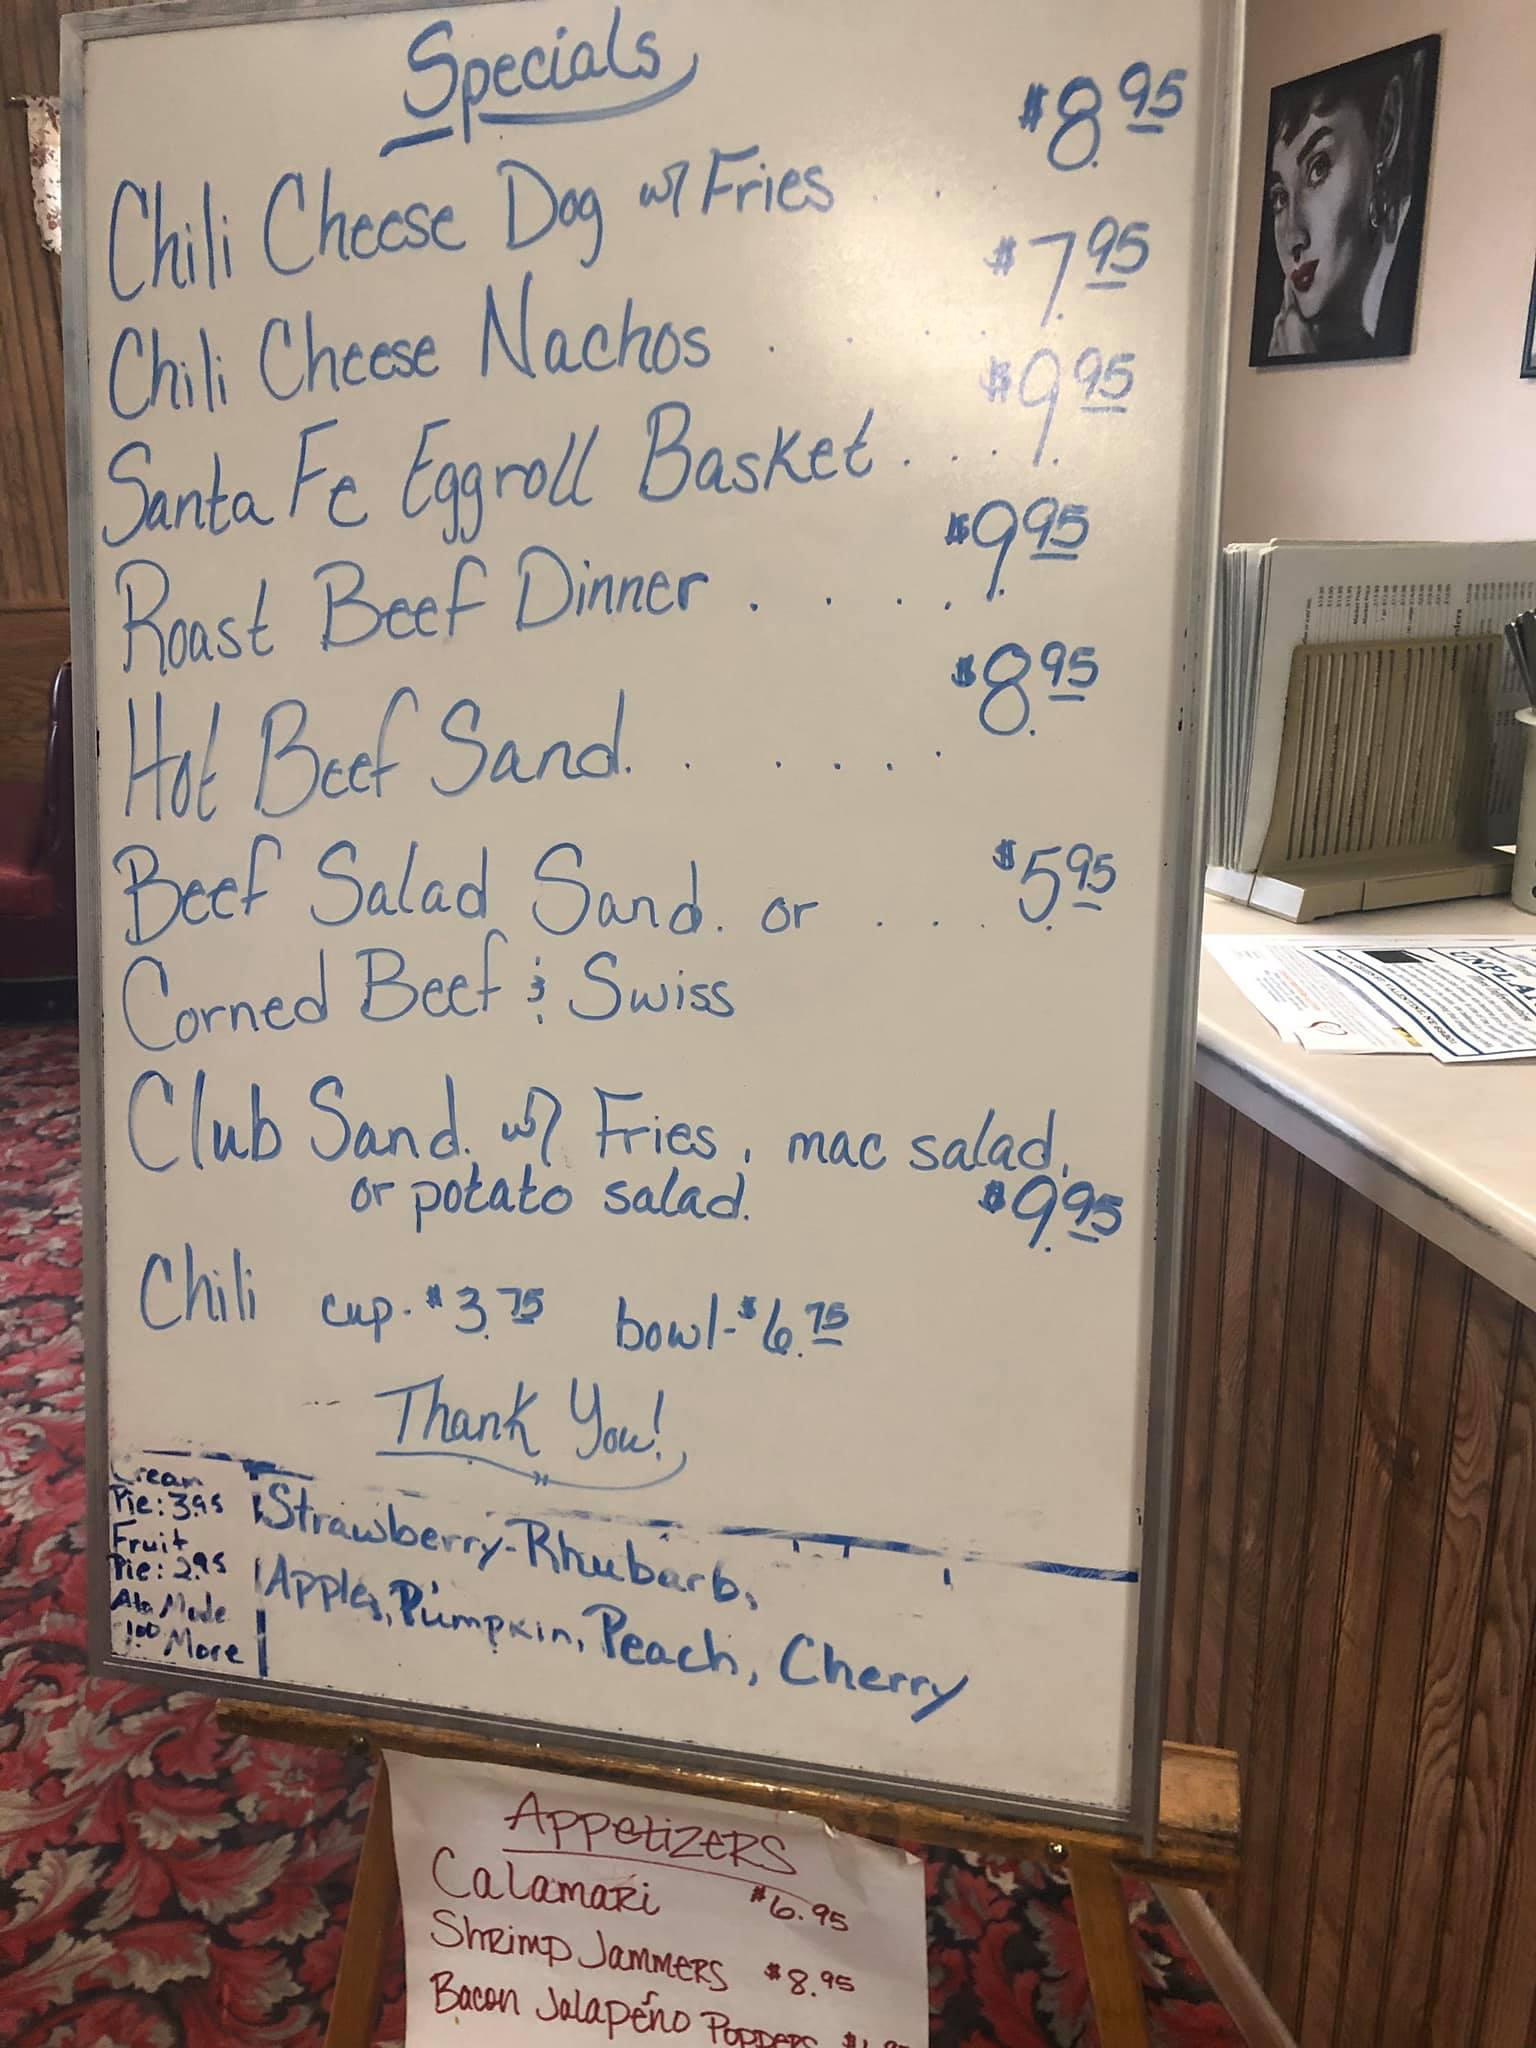 Specials
Chili Cheese Dog w/ Fries . . . $8.95
Chili Cheese Nachos . . . . $7.95
Santa Fe Eggroll Basket . . . . $9.95
Roast Beef Dinner . . . . . $9.95
Hot Beef Sand. . . . . . $8.95
Beef Salad Sand. or . . . . $5.95
Corned Beef & Swiss
Club Sand. w/ Fries, mac salad,
or potato salad. $9.95
Chili cup - $3.75 bowl - $6.75
Thank You!
Cream
Pie: 3.95
Fruit
Pie: 2.95
Ala Mode
1.00 More
Strawberry-Rhubarb,
Apple, Pumpkin, Peach, Cherry
Appetizers
Calamari $6.95
Shrimp Jammers $8.95
Bacon Jalapeño Poppers
VALENTINE, NE 69201